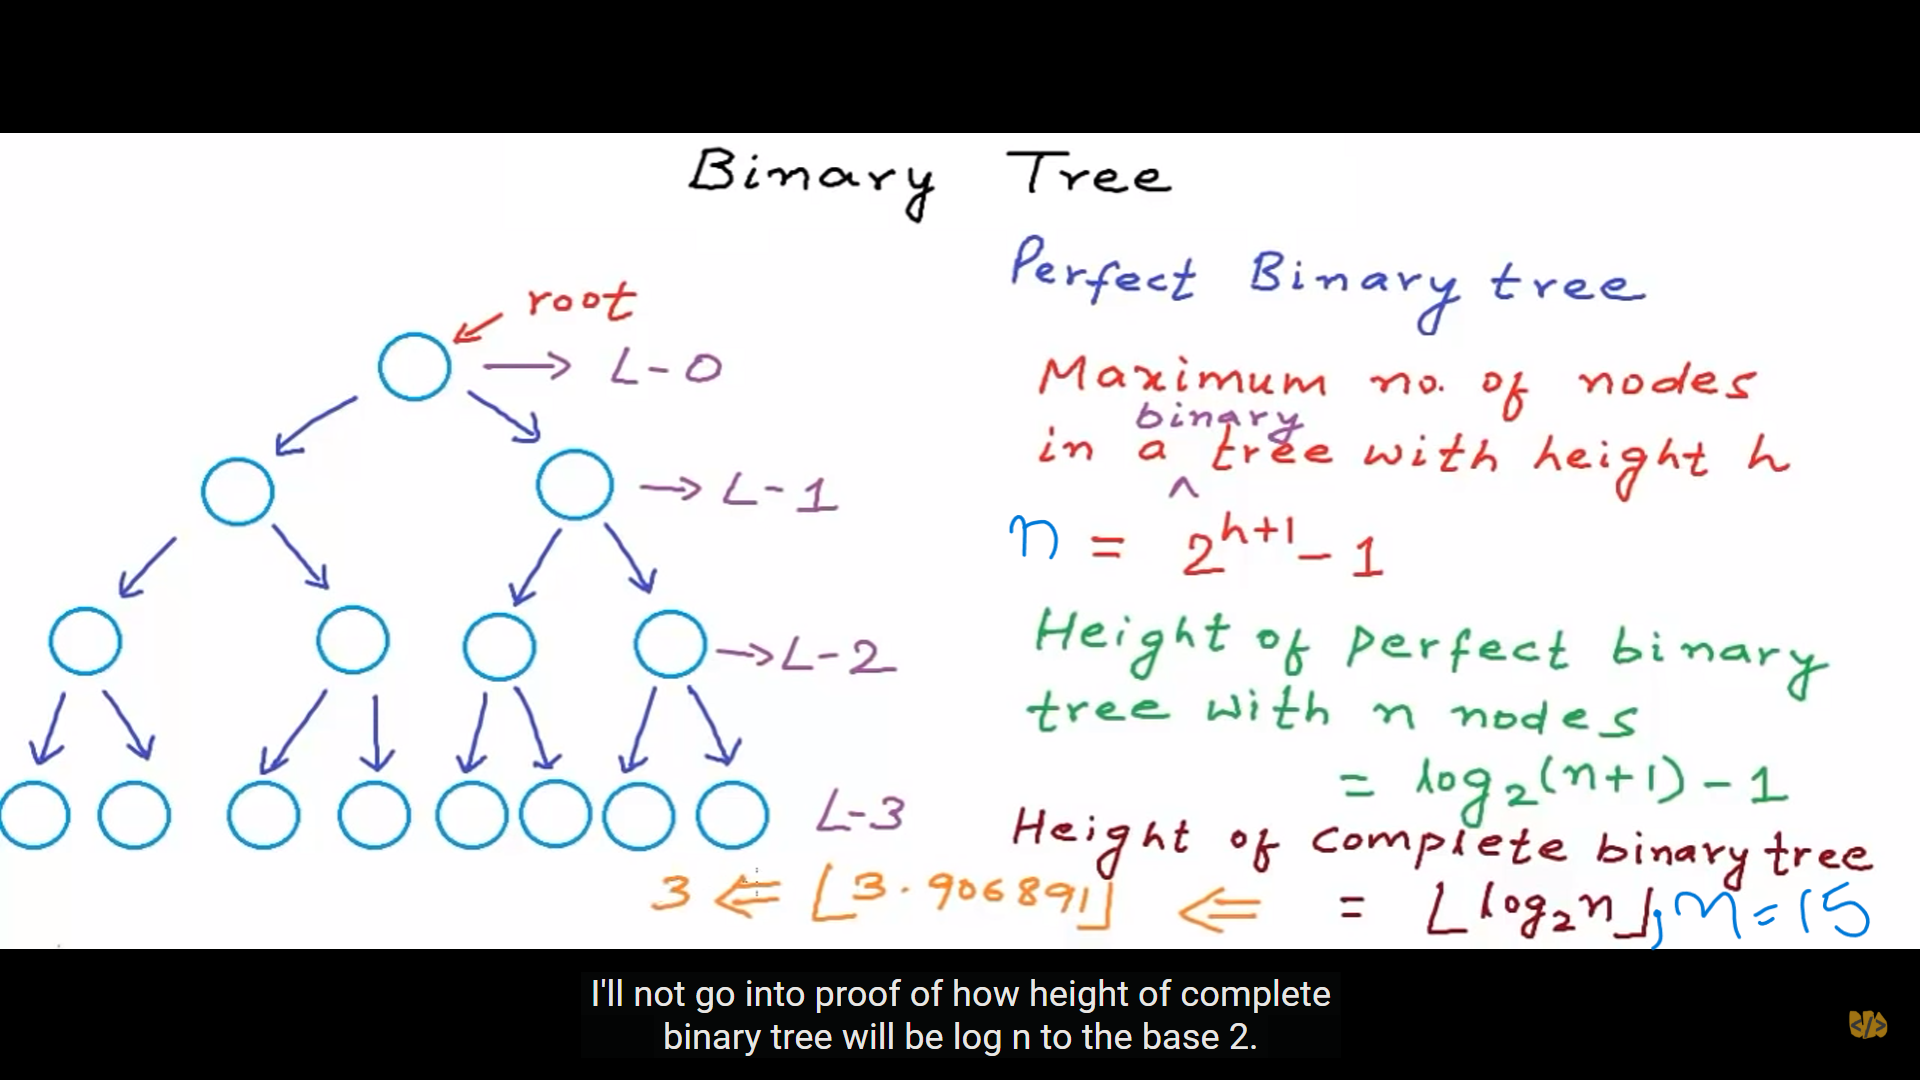 Binary Tree
root
L-0
L-1
L-2
L-3
Perfect Binary tree
Maximum no. of nodes
in a binary tree with height h
n = 2^{h+1} - 1
Height of perfect binary
tree with n nodes
= log₂(n+1) - 1
Height of complete binary tree
= ⌊log₂n⌋; n=15
3 ⇐ ⌊3.906891⌋ ⇐
I'll not go into proof of how height of complete
binary tree will be log n to the base 2.